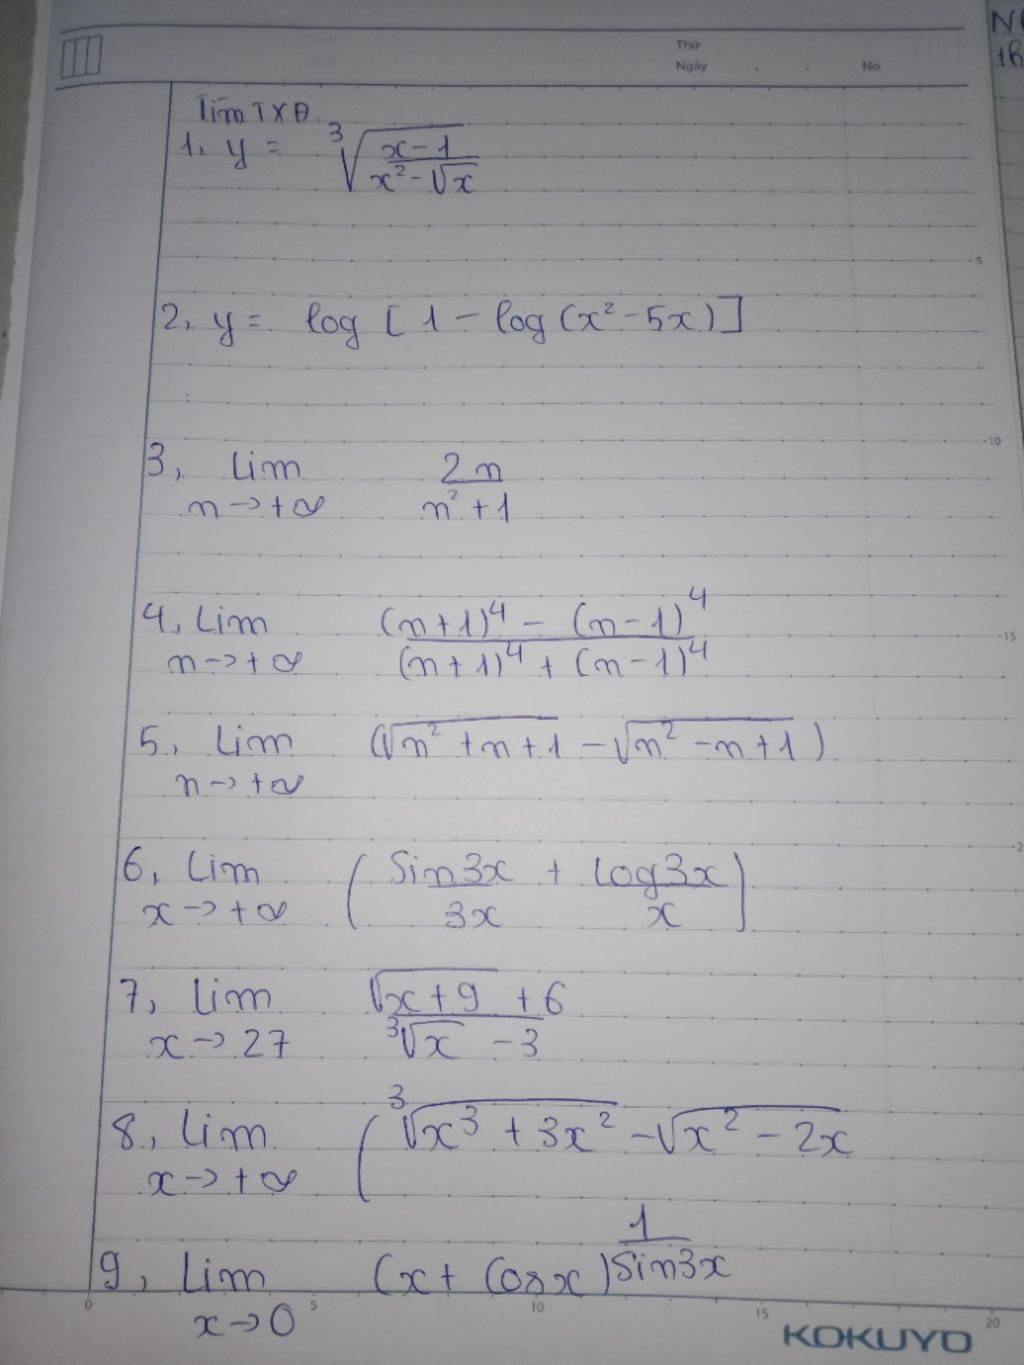 Nθ
th
Thứ
Ngày . . No.
Tìm TXĐ
1, y = ∛((x-1)/(x²-√x))
5
2, y = log [1 - log(x² - 5x)]
10
3, Lim n→+∞ 2n/(n²+1)
4, Lim n→+∞ ((n+1)⁴ - (n-1)⁴)/((n+1)⁴ + (n-1)⁴)
15
5, Lim n→+∞ (√(n²+n+1) - √(n²-n+1))
2
6, Lim x→+∞ (Sin3x/3x + log3x/x)
7, Lim x→27 (√(x+9) + 6)/(∛x - 3)
8, Lim x→+∞ (∛(x³+3x²) - √(x²-2x)
9, Lim x→0 (x + Cosx)^(1/Sin3x)
0 5 10 15 20
KOKUYO